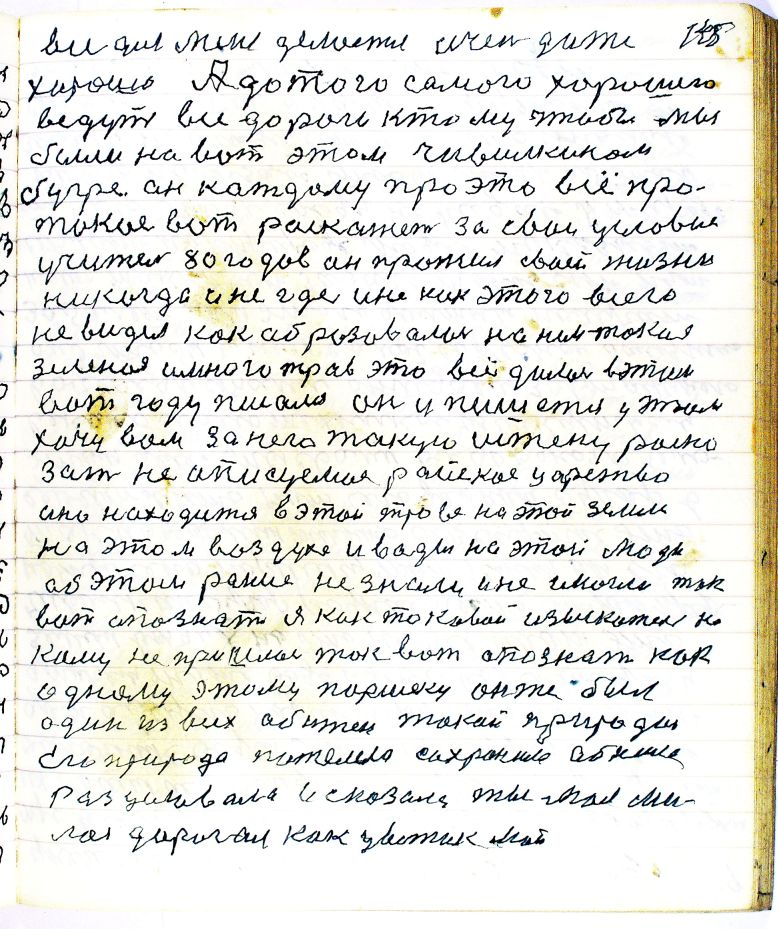 вы для мене делоется ичен дите 128
хорошо А дотого самого хорошего
ведут все дороги ктому чтобы мы
были на вот этом чивилкином
бугре. ан каждому про это всё про-
такое вот раскажет за свои условие
учител 80 годов ан прожил своей жизни
никогда и не где и не как этого всего
не видел как аброзовалая на ним такая
зеленая и много трав это всё дилоя в этом
вот году писалэ он и пишется у этом
хочу вам за него такую истену роско
зат не аписуемое райское царство
ано находится в этой трове на этой земли
на этом воздухе и вады на этой люди
аб этом рание не знали и не имогли так
вот апознат я как таковой изыскател не
каму не пришлое так вот апознат как
одному этому паршеку он же был
один из всех абител такой природы
его природа пожелела сохранила абнела
разцаловала и сказала ты мой ми-
лой дорогая как цветик мой